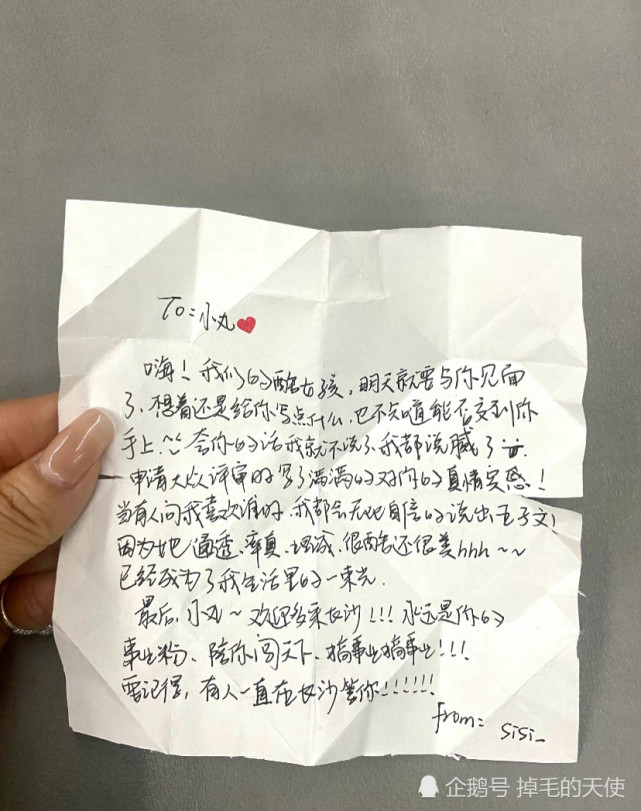 To：小丸❤
嗨！我们的酷女孩，明天就要与你见面
了，想着还是给你写点什么，也不知道能否交到你
手上～夸你的话我就不说了，我都说腻了
申请大众评审时写了满满的对你的真情实感！
当有人问我喜欢谁时，我都会无比自信的说出王子文！
因为她通透、率真、坦诚、很酷还很美hhh～～
已经成为了我生活里的一束光.
最后，小丸～欢迎多来长沙！！！永远是你的
事业粉、陪你闯天下、搞事业搞事业！！！
要记得，有人一直在长沙等你！！！！！！
from：sisi_
企鹅号 掉毛的天使